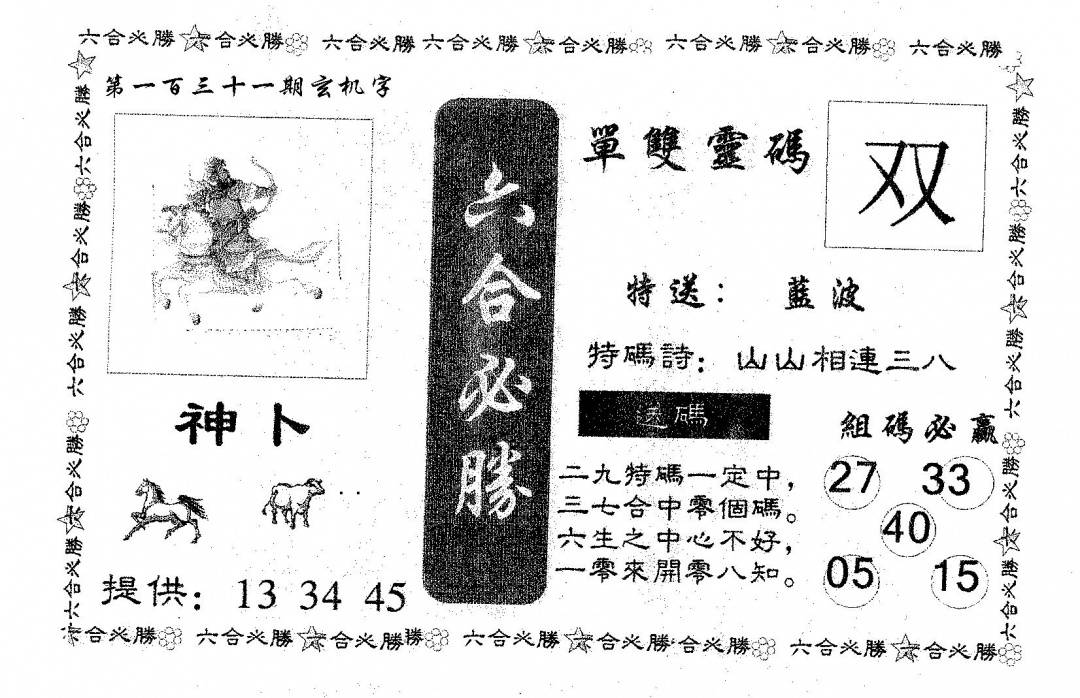 六合必勝 六合必勝 六合必勝 六合必勝 六合必勝 六合必勝 六合必勝 六合必勝
第一百三十一期玄机字
神卜
提供: 13 34 45
六合必勝
單雙靈碼
双
特送: 藍波
特碼詩: 山山相連三八
送碼
二九特碼一定中,
三七合中零個碼。
六生之中心不好,
一零來開零八知。
組碼必贏
27 33
40
05 15
六合必勝 六合必勝 六合必勝 六合必勝
六合必勝 六合必勝 六合必勝 六合必勝 六合必勝
合必勝 六合必勝 六合必勝 勝 六合必勝 六合必勝 合必勝 六合必勝 六合必勝